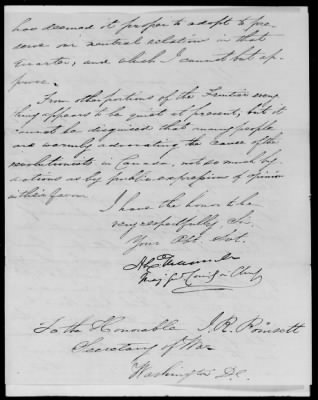 has deemed it proper to adopt to pre-
serve our neutral relation in that
quarter, and which I cannot but ap-
prove.
From other portions of the Frontier every
thing appears to be quiet at present, but it
cannot be disguised that many people
are warmly advocating the cause of the
revolutionists in Canada, not so much by
actions as by public expressions of opinion
in their favor.
I have the honor to be
very respectfully, Sir,
Your Obt. Svt.
Maj. Gen. Comg in Chief
To the Honorable J. R. Poinsett
Secretary of War
Washington D.C.